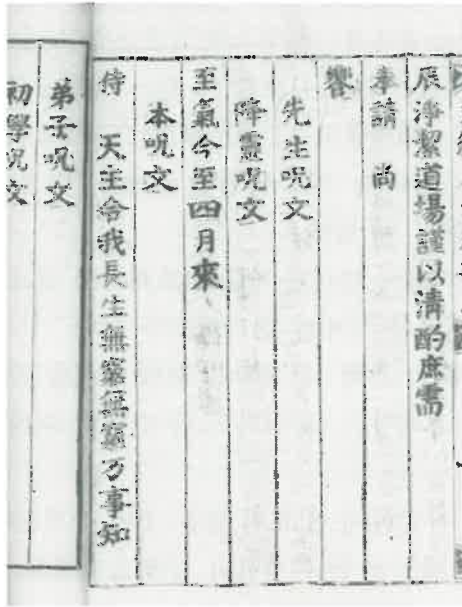 辰淨潔道場謹以清酌庶需
奉請 尚
饗
先生呪文
降靈呪文
至氣今至四月來
本呪文
侍 天主令我長生無窮無窮万事知
弟子呪文
初學呪文